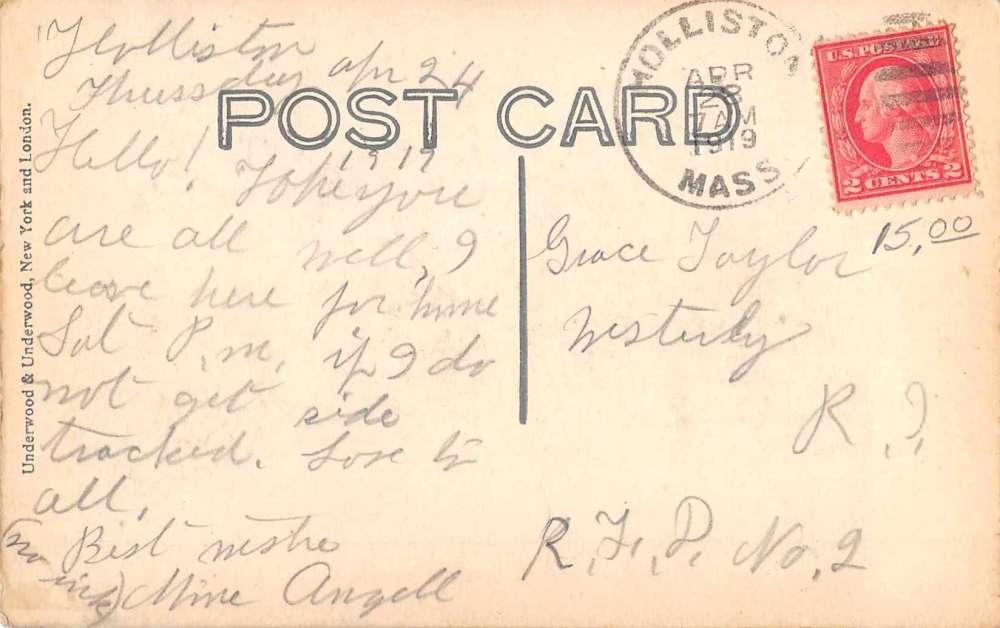 Holliston
Thursday Apr 24
1919
Hello! Hope you
are all well, I
leave here for home
Sat P.m. if I do
not get side
tracked. Love to
all.
Best wishes
(no ink) Mine Angell
POST CARD
HOLLISTON
APR
28
7 AM
1919
MASS
U.S. POSTAGE
2 CENTS 2
15.00
Grace Taylor
Westerly
R.I.
R.F.D. No. 2
Underwood & Underwood, New York and London.